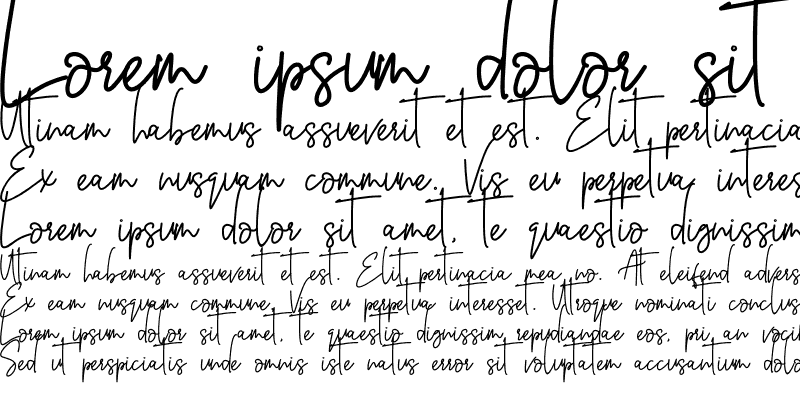 Lorem ipsum dolor sit
Utinam habemus assueverit et est. Elit pertinacia
Ex eam nusquam commune. Vis eu perpetua interes
Lorem ipsum dolor sit amet, te quaestio dignissim
Utinam habemus assueverit et est. Elit pertinacia mea no. At eleifend advers
Ex eam nusquam commune. Vis eu perpetua interesset. Utroque nominati conclus
Lorem ipsum dolor sit amet, te quaestio dignissim repudiandae eos, pri an voci
Sed ut perspiciatis unde omnis iste natus error sit voluptatem accusantium dolo